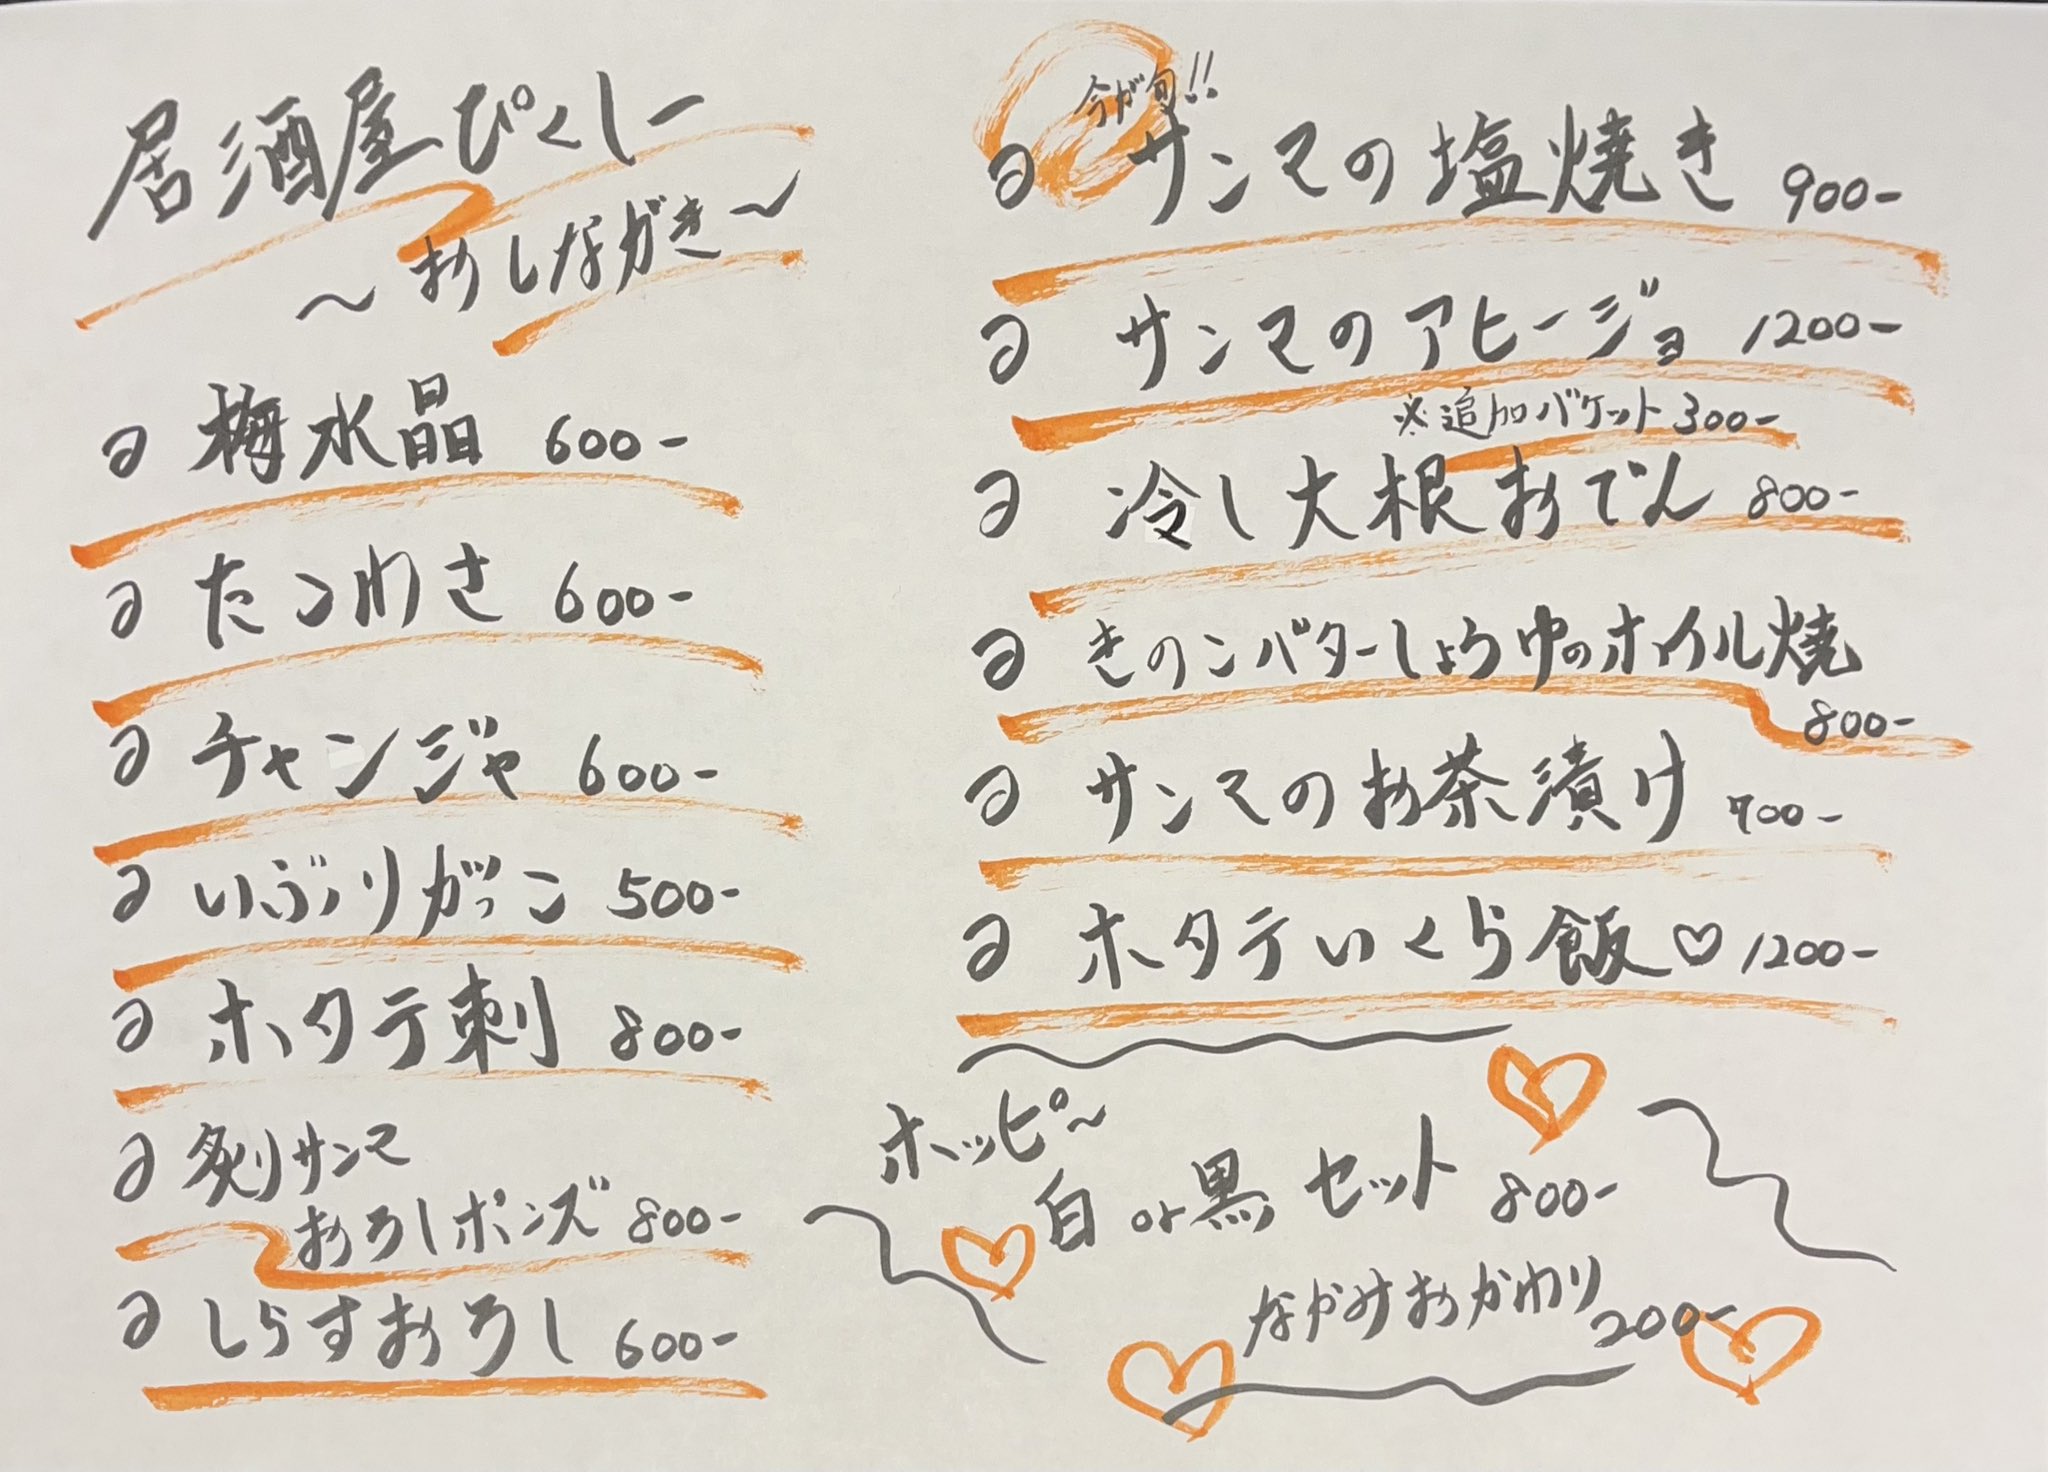 居酒屋ぴくしー
～おしながき～
梅水晶 600-
たこわさ 600-
チャンジャ 600-
いぶりがっこ 500-
ホタテ刺 800-
炙りサンマ
おろしポンズ 800-
しらすおろし 600-
今が旬!!
サンマの塩焼き 900-
サンマのアヒージョ 1200-
※追加バケット 300-
冷し大根おでん 800-
きのこバターしょうゆのホイル焼
800-
サンマのお茶漬け 700-
ホタテいくら飯♡ 1200-
ホッピ～
白 or 黒 セット 800-
なかみおかわり 200-